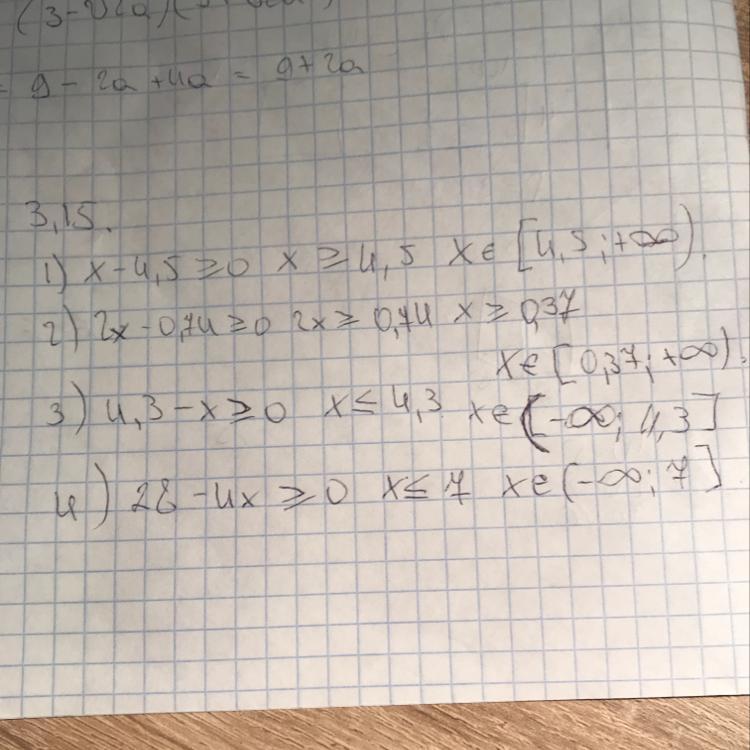 = 9 - 2a + 4a = 9 + 2a
3,15.
1) x - 4,5 ≥ 0 x ≥ 4,5 x ∈ [4,5; +∞).
2) 2x - 0,74 ≥ 0 2x ≥ 0,74 x ≥ 0,37
x ∈ [0,37; +∞).
3) 4,3 - x ≥ 0 x ≤ 4,3 x ∈ (-∞; 4,3]
4) 28 - 4x ≥ 0 x ≤ 7 x ∈ (-∞; 7]